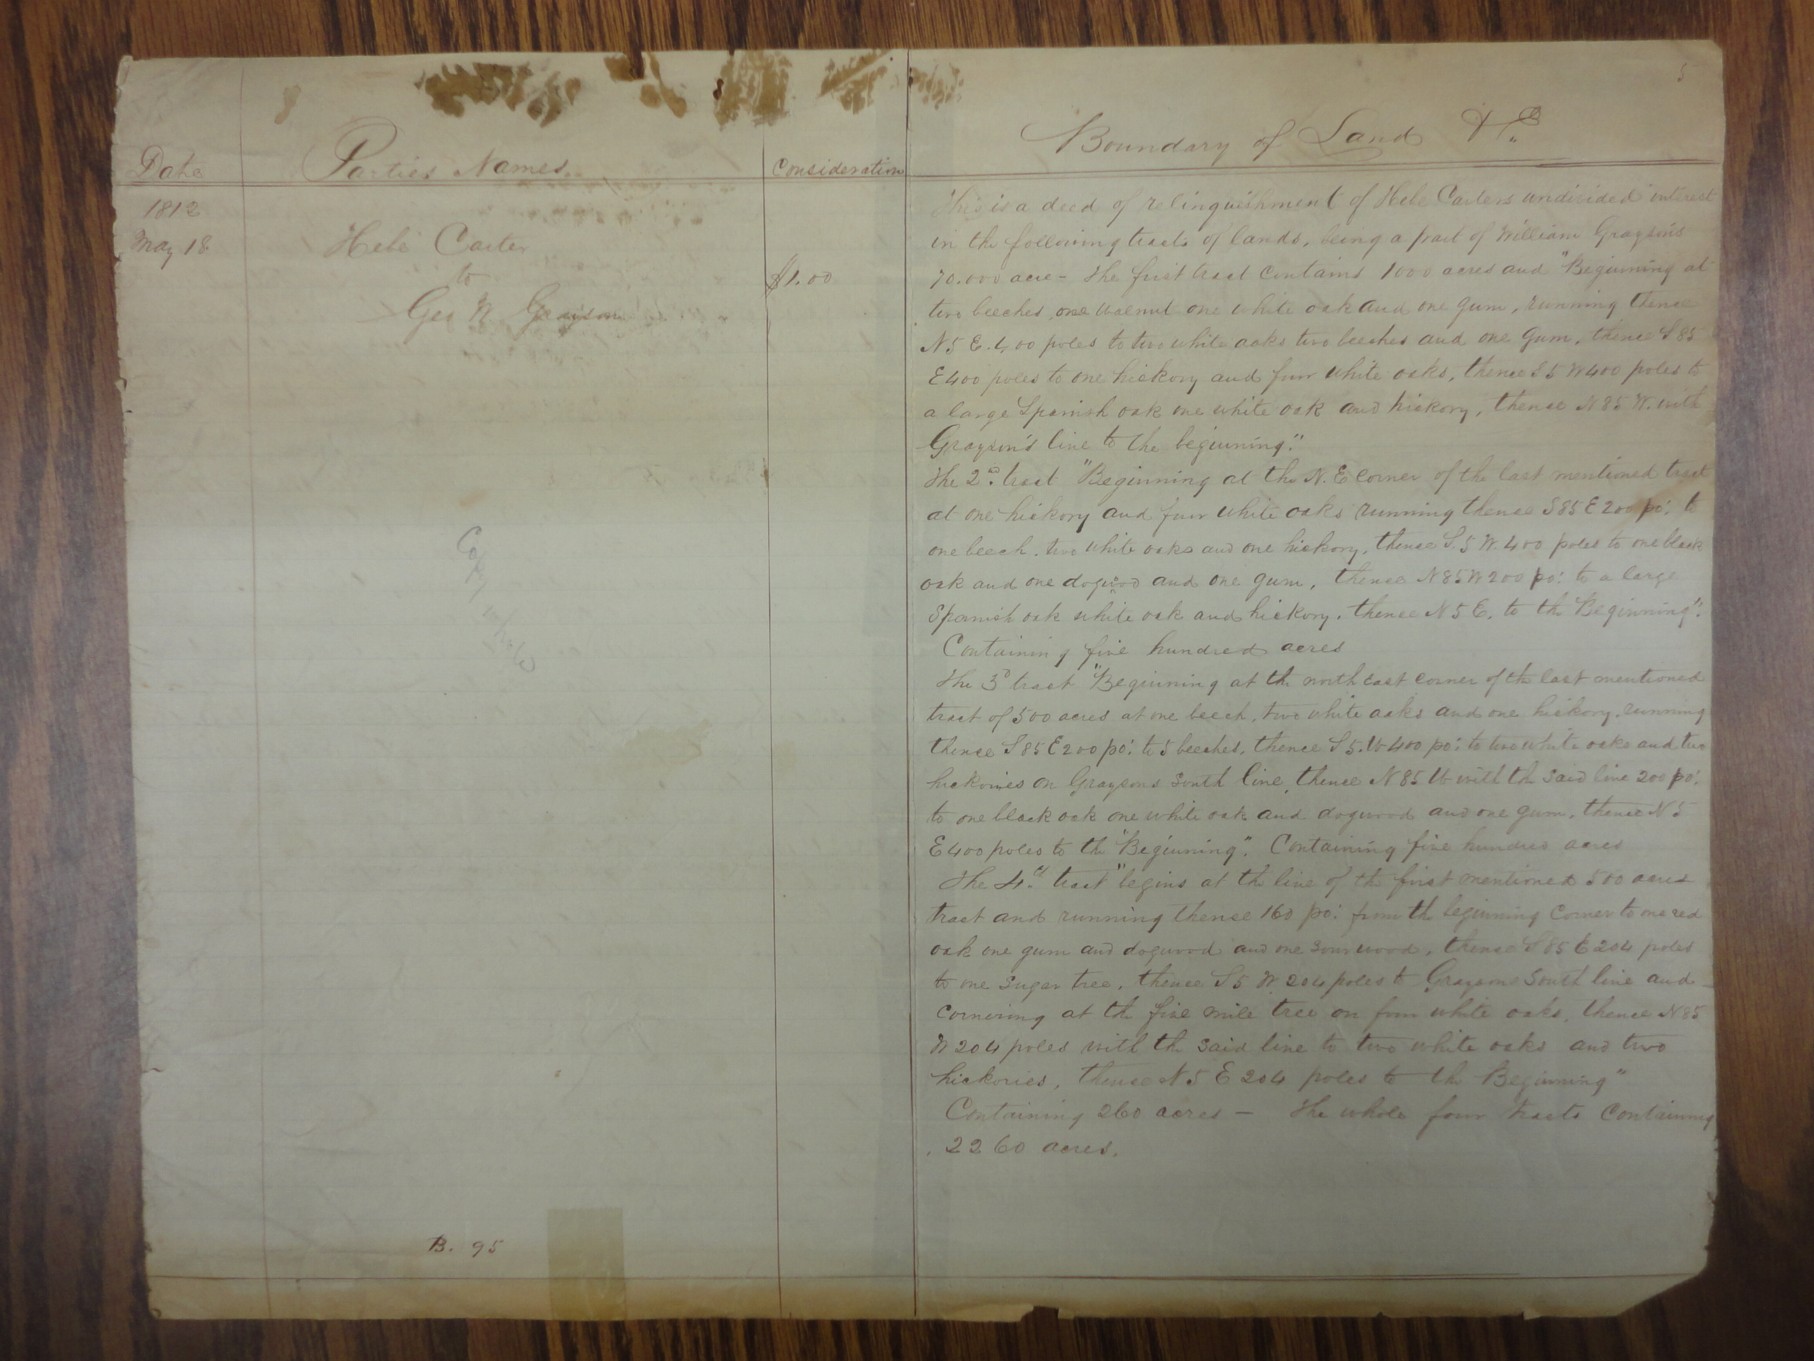 5
Date
Parties Names.
Consideration
Boundary of Land &c.
1812
May 18
Hebe Carter
to
Geo W Grayson
$1.00
This is a deed of relinquishment of Hebe Carters undivided interest
in the following tracts of lands, being a part of William Grayson's
70.000 acre - The first tract contains 1000 acres and "Beginning at
two beeches one walnut one white oak and one gum, running thence
N 5 E. 400 poles to two white oaks two beeches and one gum, thence S 85
E 400 poles to one hickory and four white oaks, thence S 5 W 400 poles to
a large Spanish oak one white oak and hickory, thence N 85 W. with
Grayson's line to the beginning."
The 2d. tract "Beginning at the N. E corner of the last mentioned tract
at one hickory and four white oaks running thence S 85 E 200 po: to
one beech. two white oaks and one hickory, thence S. 5 W. 400 poles to one black
oak and one dogwood and one gum, thence N 85 W 200 po: to a large
Spanish oak white oak and hickory, thence N 5 E. to the Beginning".
Containing five hundred acres
The 3d tract "Beginning at the north east corner of the last mentioned
tract of 500 acres at one beech, two white oaks and one hickory. running
thence S 85 E 200 po: to 5 beeches, thence S 5. W 400 po: to two white oaks and two
hickories on Graysons South line, thence N 85 W with the said line 200 po:
to one black oak one white oak and dogwood and one gum, thence N 5
E 400 poles to the "Beginning". Containing five hundred acres
The 4th tract "begins at the line of the first mentioned 500 acres
tract and running thence 160 po: from the beginning corner to one red
oak one gum and dogwood and one sourwood, thence S 85 E 204 poles
to one sugar tree, thence S 5 W. 204 poles to Graysons South line and
cornering at the five mile tree on four white oaks, thence N 85
W 204 poles with the said line to two white oaks and two
hickories, thence N 5 E 204 poles to the Beginning"
Containing 260 acres - The whole four tracts containing
2260 acres.
B. 95